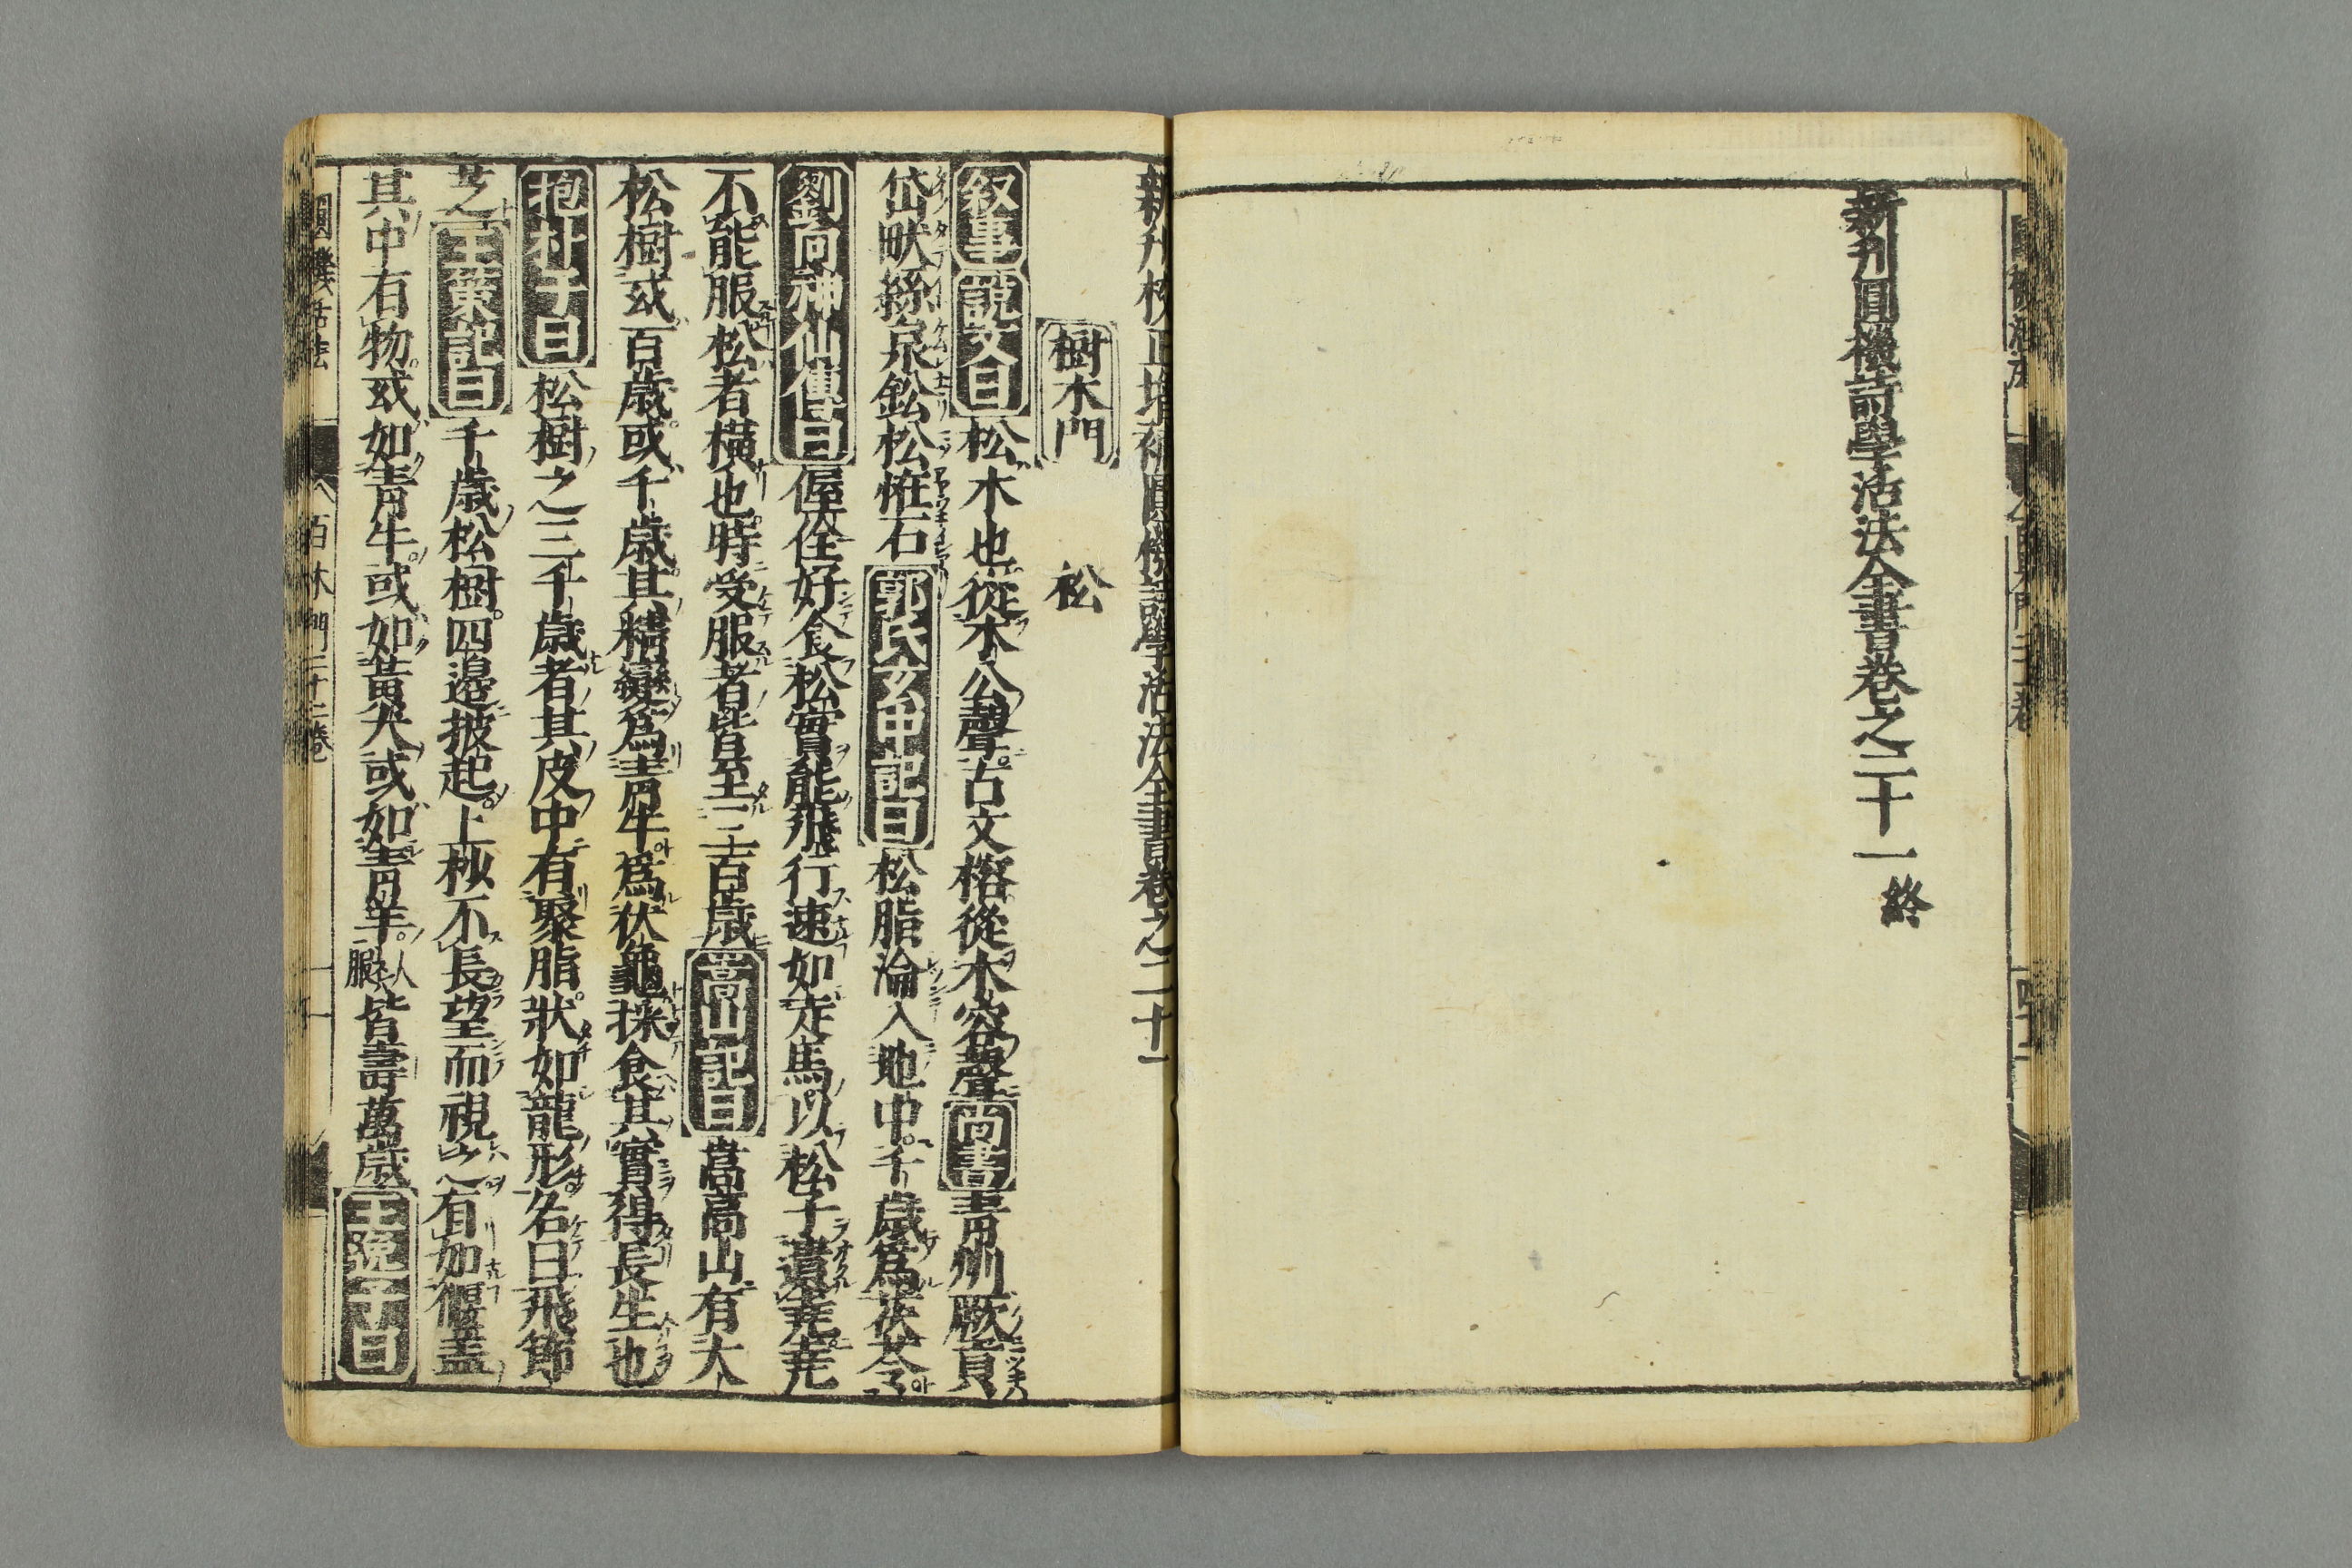 新刋圓機詩學活法全書卷之二十一終
新刋校正增補圓機詩學活法全書卷之二十一
樹木門 松
叙事說文曰松木也從木公聲古文榕從木容聲尚書靑州厥貢
岱畎絲枲鈆松恠石郭氏玄中記曰松脂淪入地中千歲爲茯苓
劉向神仙傳曰偓佺好食松實能飛行速如走馬以松子遺堯堯
不能服松者橫也時受服者皆至三百歲嵩山記曰嵩高山有大
松樹或百歲或千歲其精變爲靑牛爲伏龜採食其實得長生也
抱朴子曰松樹之三千歲者其皮中有聚脂狀如龍形名曰飛節
芝王策記曰千歲松樹四邉披起上杪不長望而視之有如偃盖
其中有物或如靑牛或如黃犬或如靑羊人服皆壽萬歲王隱子曰
圓機活法 百木門二十二卷 一